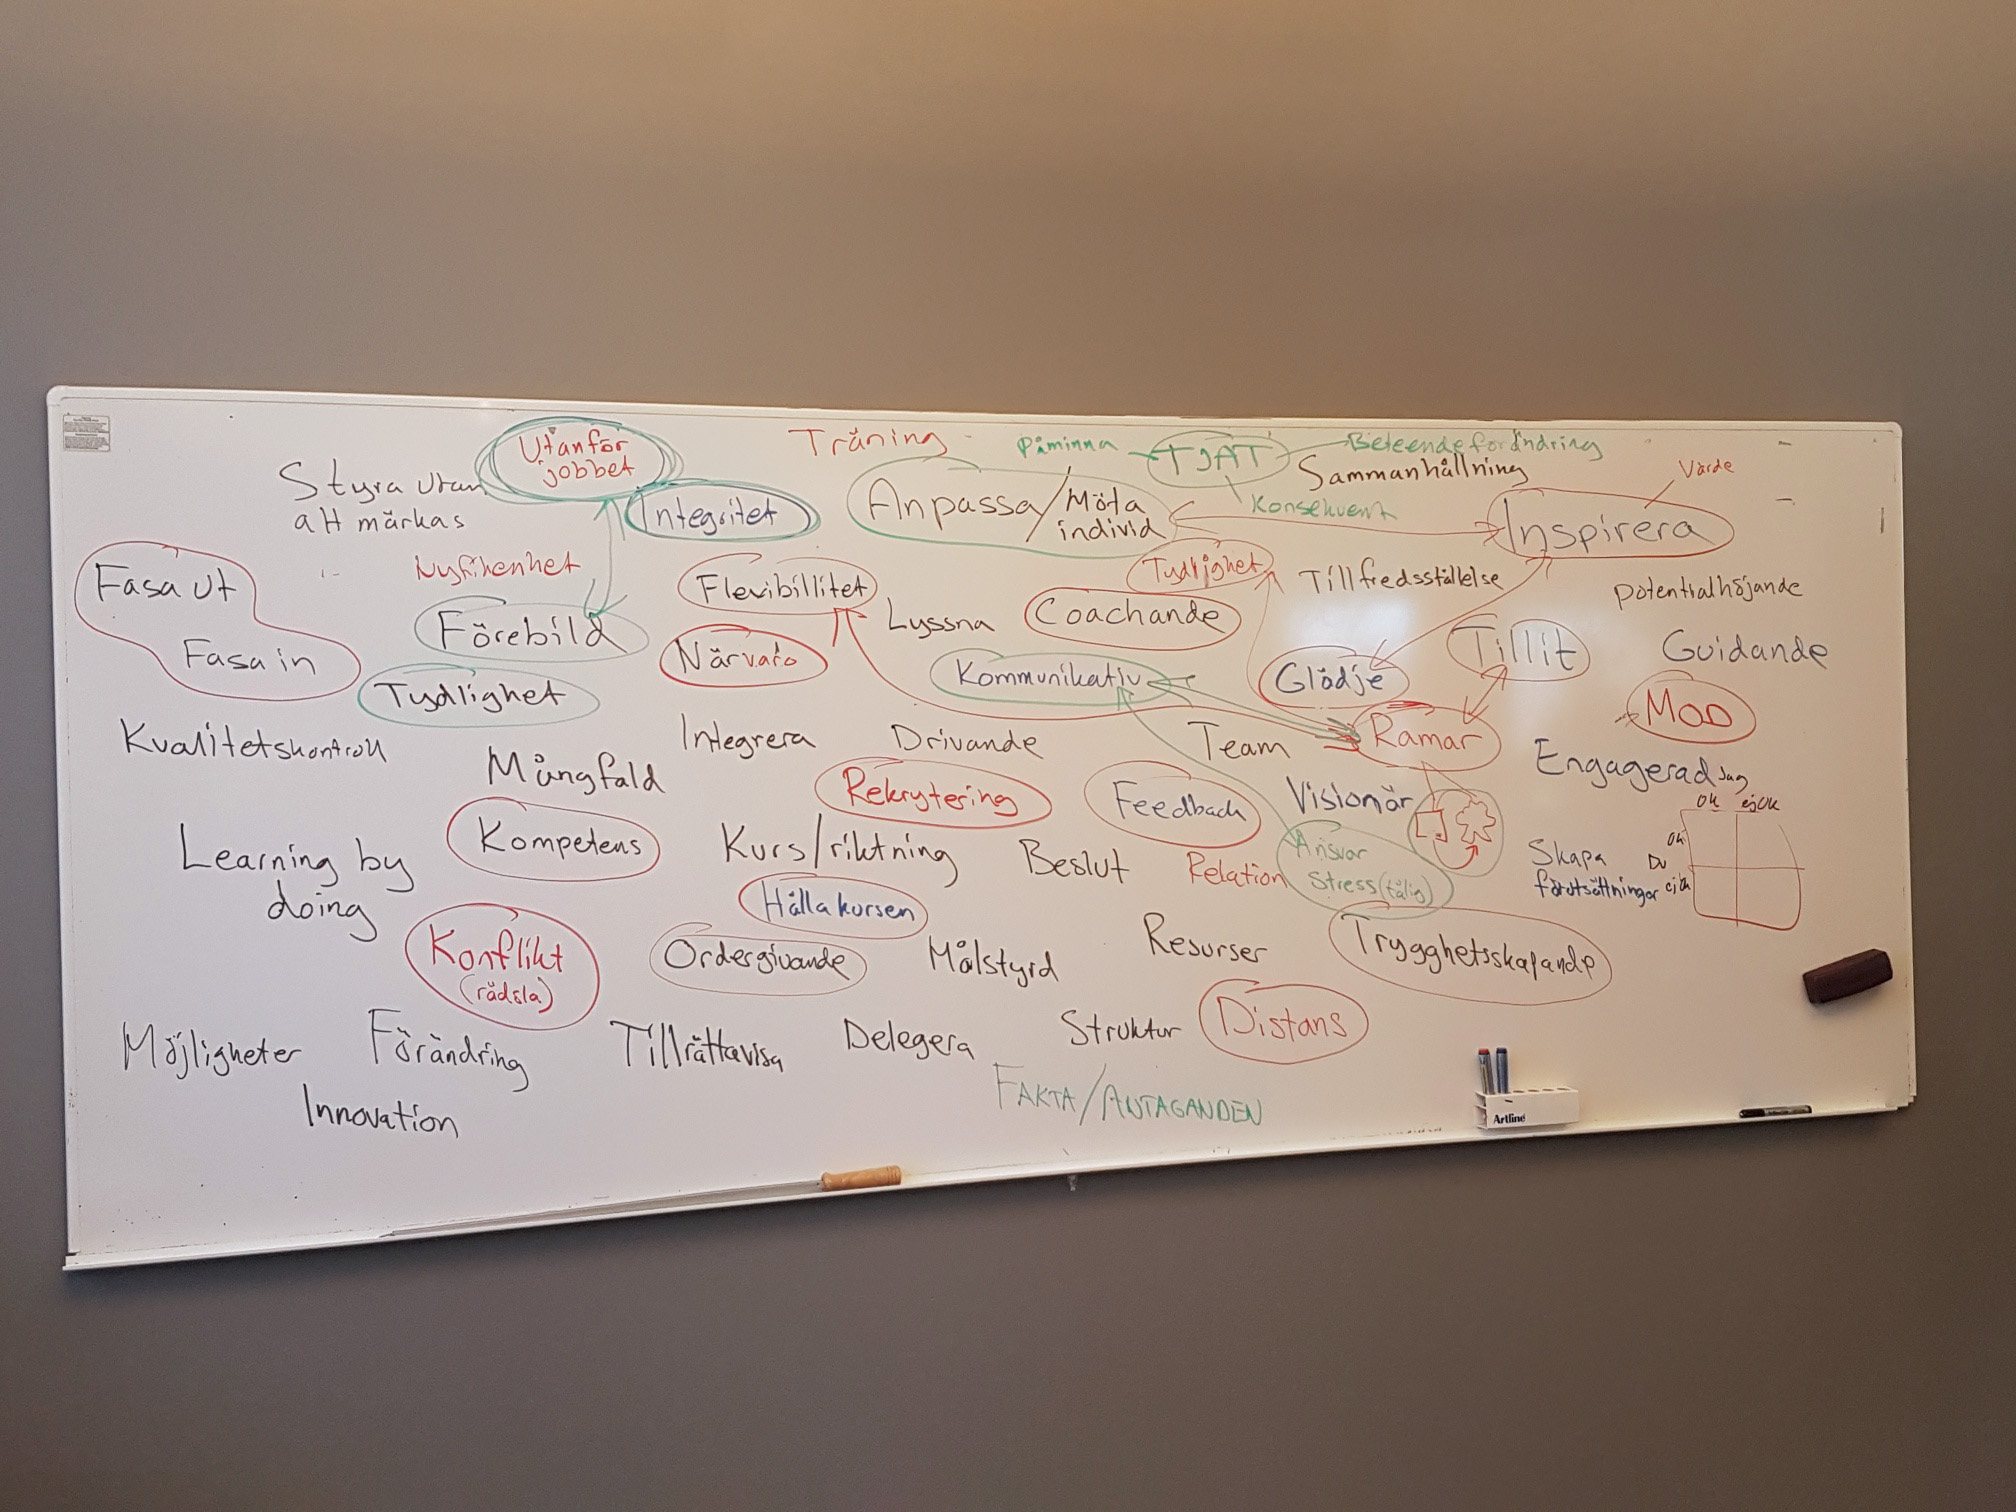 Utanför
jobbet
Träning
Påminna
TJAT
Beteendeförändring
Sammanhållning
Värde
Styra utan
att märkas
Integritet
Anpassa/Möta
individ
Konsekvent
Inspirera
Fasa ut
Nyfikenhet
Flexibillitet
Tydlighet
Tillfredsställelse
Potentialhöjande
Förebild
Lyssna
Coachande
Tillit
Guidande
Fasa in
Närvaro
Tydlighet
Kommunikativ
Glädje
MOD
Kvalitetskontroll
Integrera
Drivande
Team
Ramar
Engagerad
Mångfald
Rekrytering
Feedback
Visionär
Jag
OK ej OK
Kompetens
Kurs/riktning
Beslut
Relation
Ansvar
Stress(tålig)
Skapa
förutsättningar
OK
Du
ej OK
Learning by
doing
Hålla kursen
Konflikt
(rädsla)
Ordergivande
Målstyrd
Resurser
Trygghetsskapande
Möjligheter
Förändring
Tillrättavisa
Delegera
Struktur
Distans
Innovation
FAKTA/ANTAGANDEN
Artline